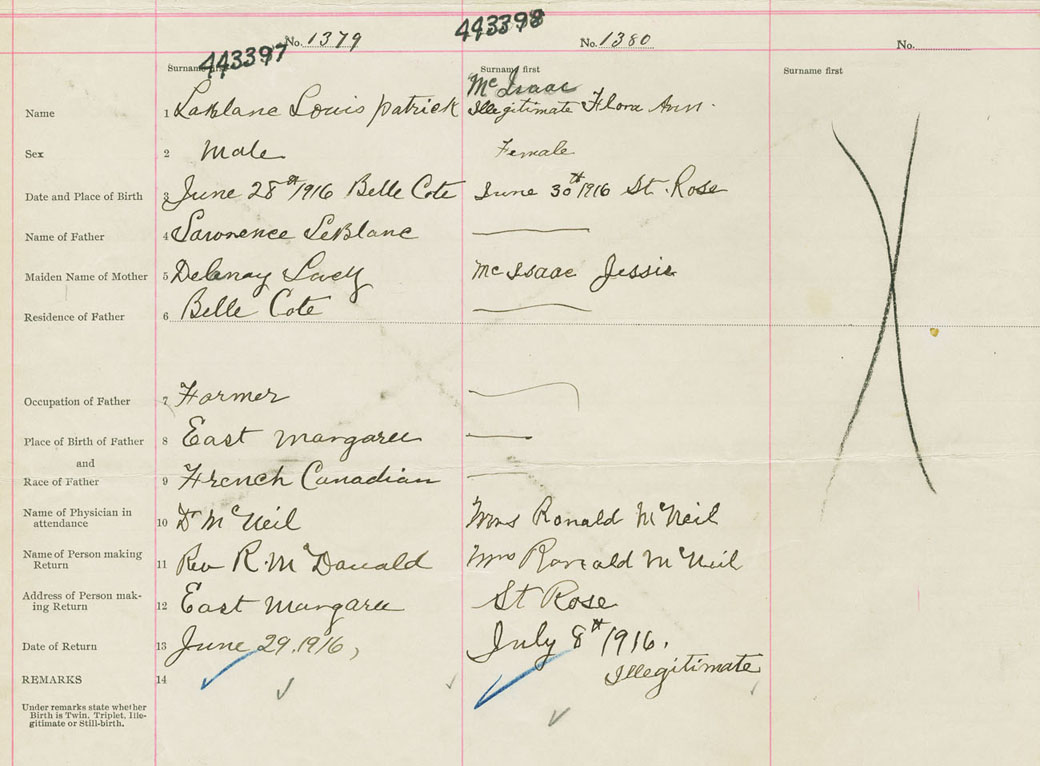 443397
443398
No. 1379
No. 1380
No.
Surname first
Surname first
Surname first
Mc Isaac
Name 1 Leblanc Louis Patrick
Illegitimate Flora Ann.
Sex 2 Male
Female
Date and Place of Birth 3 June 28th 1916 Belle Cote
June 30th 1916 St. Rose
Name of Father 4 Lawrence LeBlanc
Maiden Name of Mother 5
Mc Isaac Jessie
Residence of Father 6 Belle Cote
Occupation of Father 7 Farmer
Place of Birth of Father 8 East Margaree
and
Race of Father 9 French Canadian
Name of Physician in
attendance 10 Dr McNeil
Mrs Ronald McNeil
Name of Person making
Return 11 Rev R. McDonald
Mrs Ronald McNeil
Address of Person mak-
ing Return 12 East Margaree
St Rose
Date of Return 13 June 29, 1916,
July 8th 1916.
REMARKS 14
Illegitimate
Under remarks state whether
Birth is Twin, Triplet, Ille-
gitimate or Still-birth.